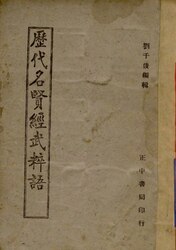 劉千俊編輯
歷代名賢經武粹語
正中書局印行